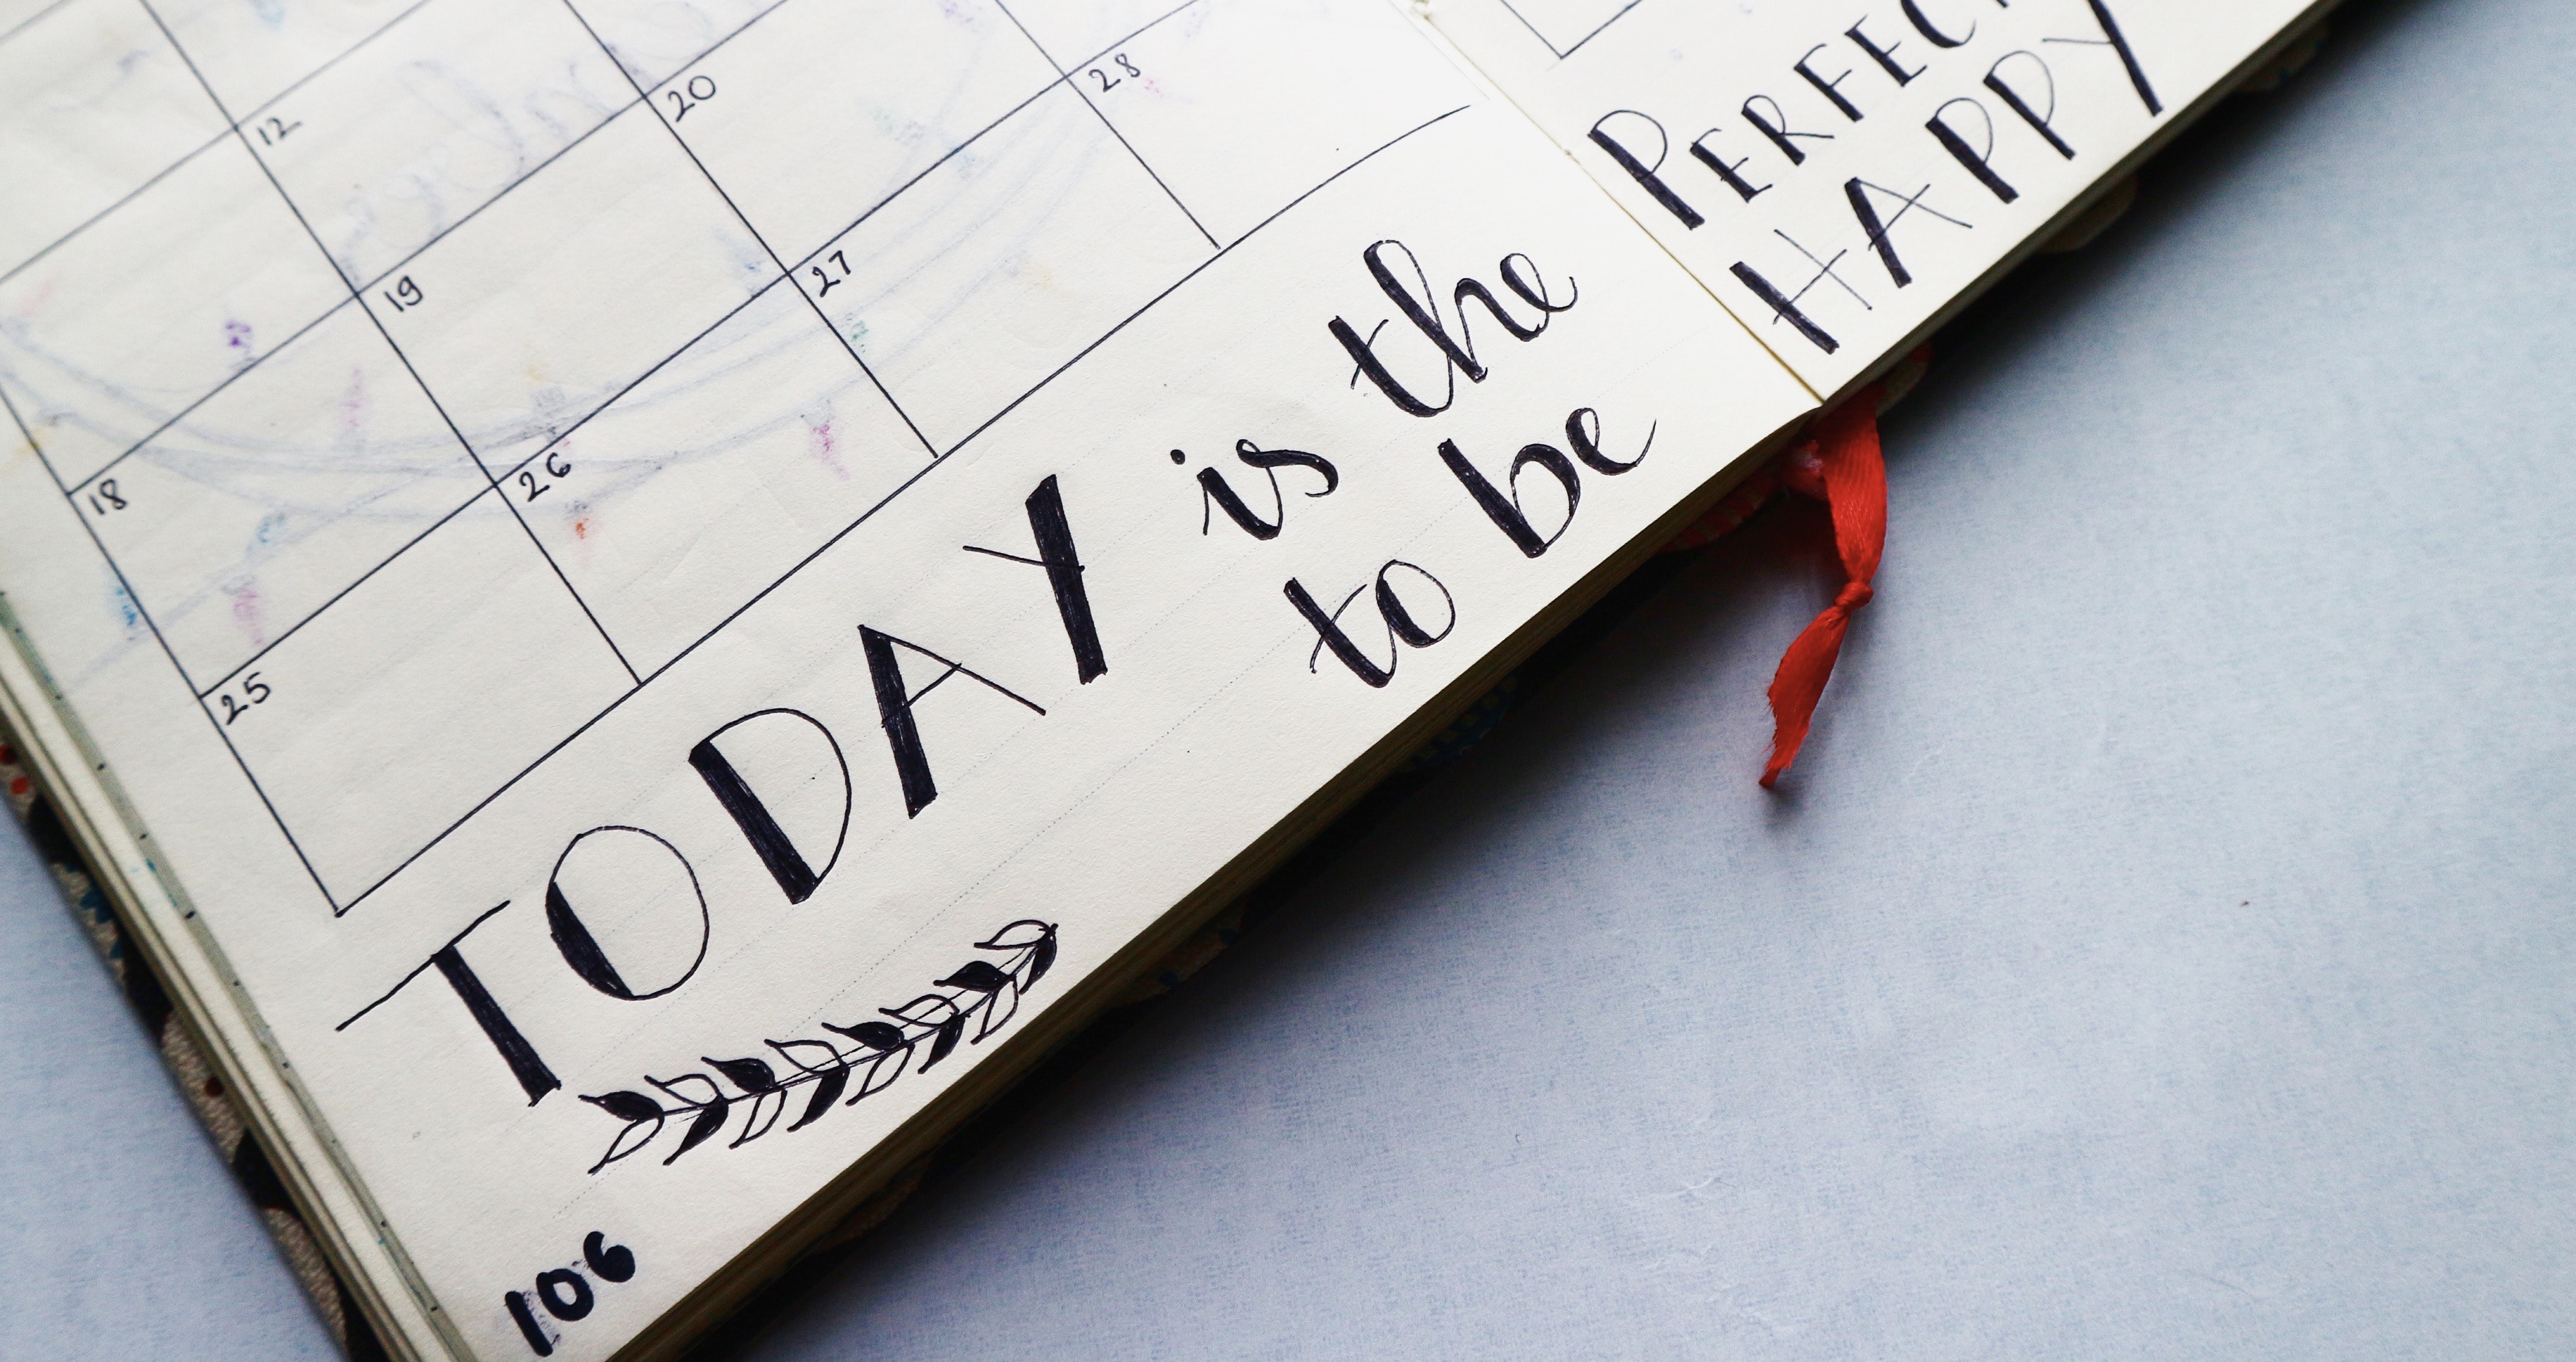 12
18 19 20
25 26 27 28
TODAY is the
to be
PERFEC
HAPPY
106